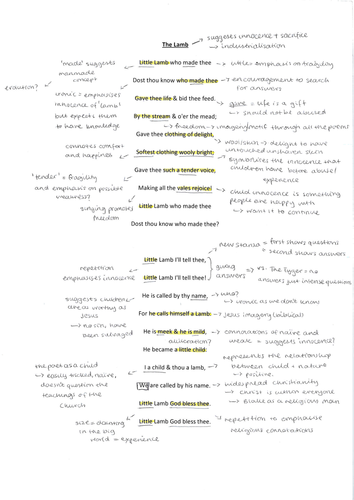 The Lamb
→ suggests innocence & sacrifice
→ industrialisation
'made' suggests
manmade
concept
Little Lamb who made thee
→ little = emphasis on fragility
evolution?
Dost thou know who made thee
→ encouragement to search
for answers
ironic = emphasises
innocence of 'lamb'
but expects them
to have knowledge
Gave thee life & bid thee feed.
→ gave = life is a gift
→ should not be abused
By the stream & o'er the mead;
→ freedom → imagery/motif through all the poems
Gave thee clothing of delight,
connotes comfort
and happiness
Softest clothing wooly bright;
→ delight to have
symbolises the innocence that
children have before abuse/
experience
'tender' = fragility
and emphasis on possible
weakness?
Gave thee such a tender voice,
Making all the vales rejoice!
→ child innocence is something
people are happy with
→ want it to continue
singing promotes
freedom
Little Lamb who made thee
Dost thou know who made thee?
new stanza = first shows questions
= second shows answers
repetition
emphasises innocence
Little Lamb I'll tell thee,
Little Lamb I'll tell thee!
giving
answers
→ vs. The Tyger = no
answers just intense questions
suggests children
are worthy as
Jesus
→ no sin, have
been salvaged
He is called by thy name,
→ who?
→ ironic as we don't know
For he calls himself a Lamb:
→ Jesus imagery (biblical)
He is meek & he is mild,
alliteration?
→ connotations of naive and
weak = suggests innocence?
He became a little child:
the poet as a child
→ easily tricked, naive,
doesn't question the
teachings of the
Church
I a child & thou a lamb,
represents the relationship
between child + nature
→ positive.
We are called by his name.
→ widespread christianity
→ Christ is within everyone
→ Blake as a religious man
size = drowning
in the big
world = experience
Little Lamb God bless thee.
Little Lamb God bless thee.
→ repetition to emphasise
religious connotations